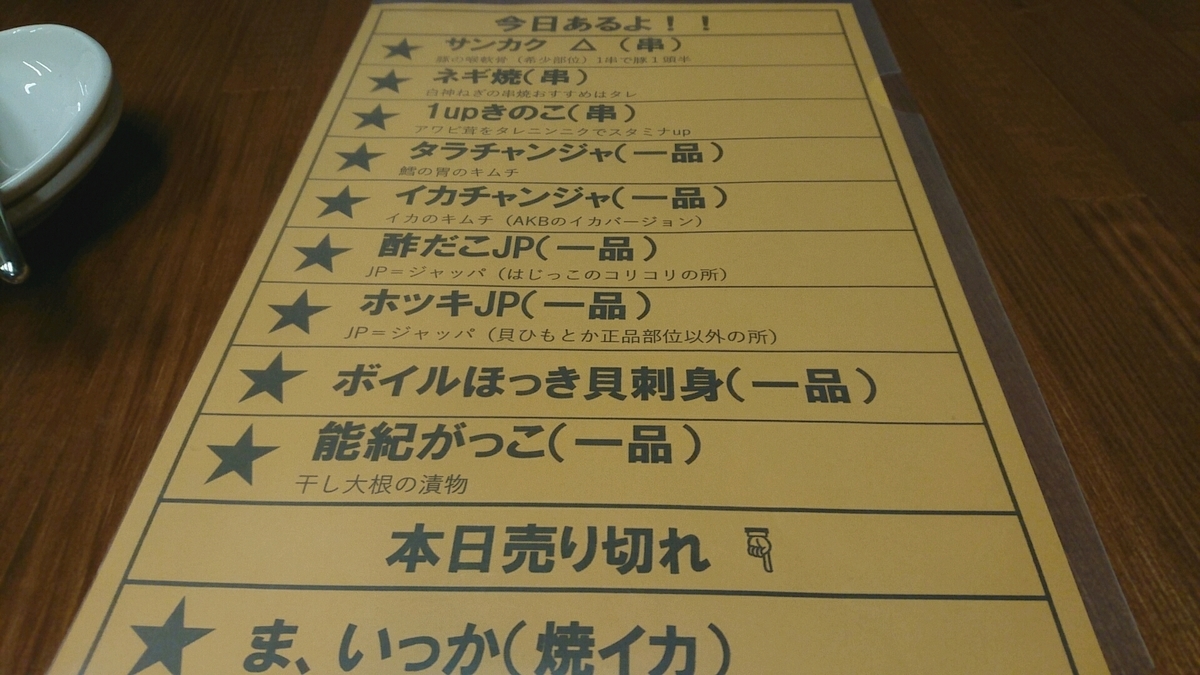 今日あるよ！！
★ サンカク △ （串）
豚の喉軟骨（希少部位）1串で豚1頭半
★ ネギ焼（串）
白神ねぎの串焼おすすめはタレ
★ 1upきのこ（串）
アワビ茸をタレニンニクでスタミナup
★ タラチャンジャ（一品）
鱈の胃のキムチ
★ イカチャンジャ（一品）
イカのキムチ（AKBのイカバージョン）
★ 酢だこJP（一品）
JP＝ジャッパ（はじっこのコリコリの所）
★ ホッキJP（一品）
JP＝ジャッパ（貝ひもとか正品部位以外の所）
★ ボイルほっき貝刺身（一品）
★ 能紀がっこ（一品）
干し大根の漬物
本日売り切れ ☟
★ ま、いっか（焼イカ）